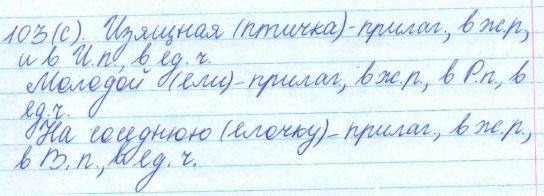 103(с). Изящная (птичка)-прилаг., в ж.р.,
и в И.п., в ед.ч.
Молодой (ели)-прилаг, в ж.р., в Р.п., в
ед.ч.
На соседнюю (елочку)-прилаг., в ж.р.,
в В.п., в ед.ч.